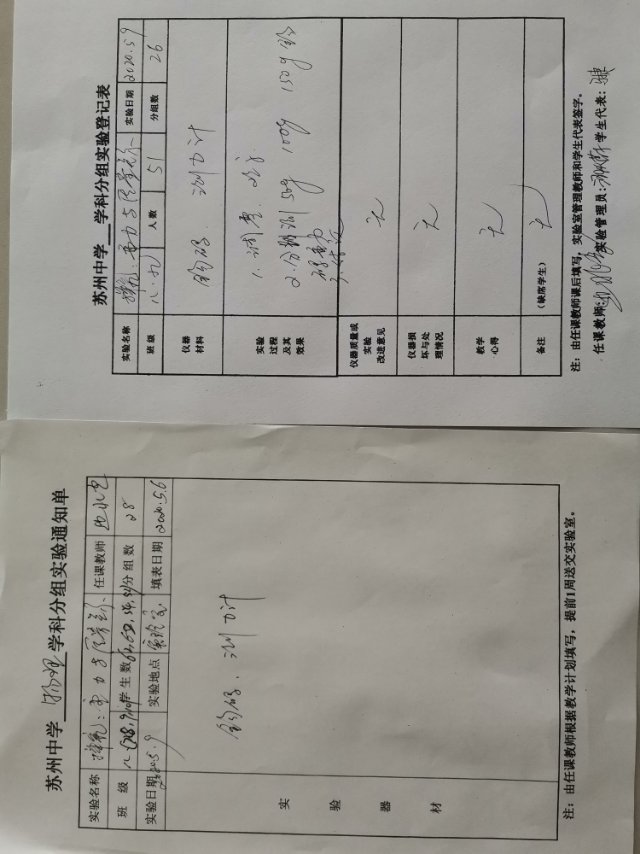 苏州中学 学科分组实验登记表
实验名称 探究:重力与质量关系 实验日期 2020.5.9
班级 八.九 人数 51 分组数 26
仪器材料 钩码 测力计
实验过程及其效果 1. 调零
2. 分别测 50g 100g 150g
仪器质量或实验改进意见 无
仪器损坏与处理情况 无
教学心得 无
备注 (缺席学生) 无
注: 由任课教师课后填写,实验室管理教师和学生代表签字。
任课教师: 实验管理员: 学生代表:
苏州中学 物理 学科分组实验通知单
实验名称 探究:重力与质量关系 任课教师
班级 学生数 分组数 28
实验日期 实验地点 实验室 填表日期 2020.5.6
实验器材 钩码、测力计
注: 由任课教师根据教学计划填写,提前1周送交实验室。